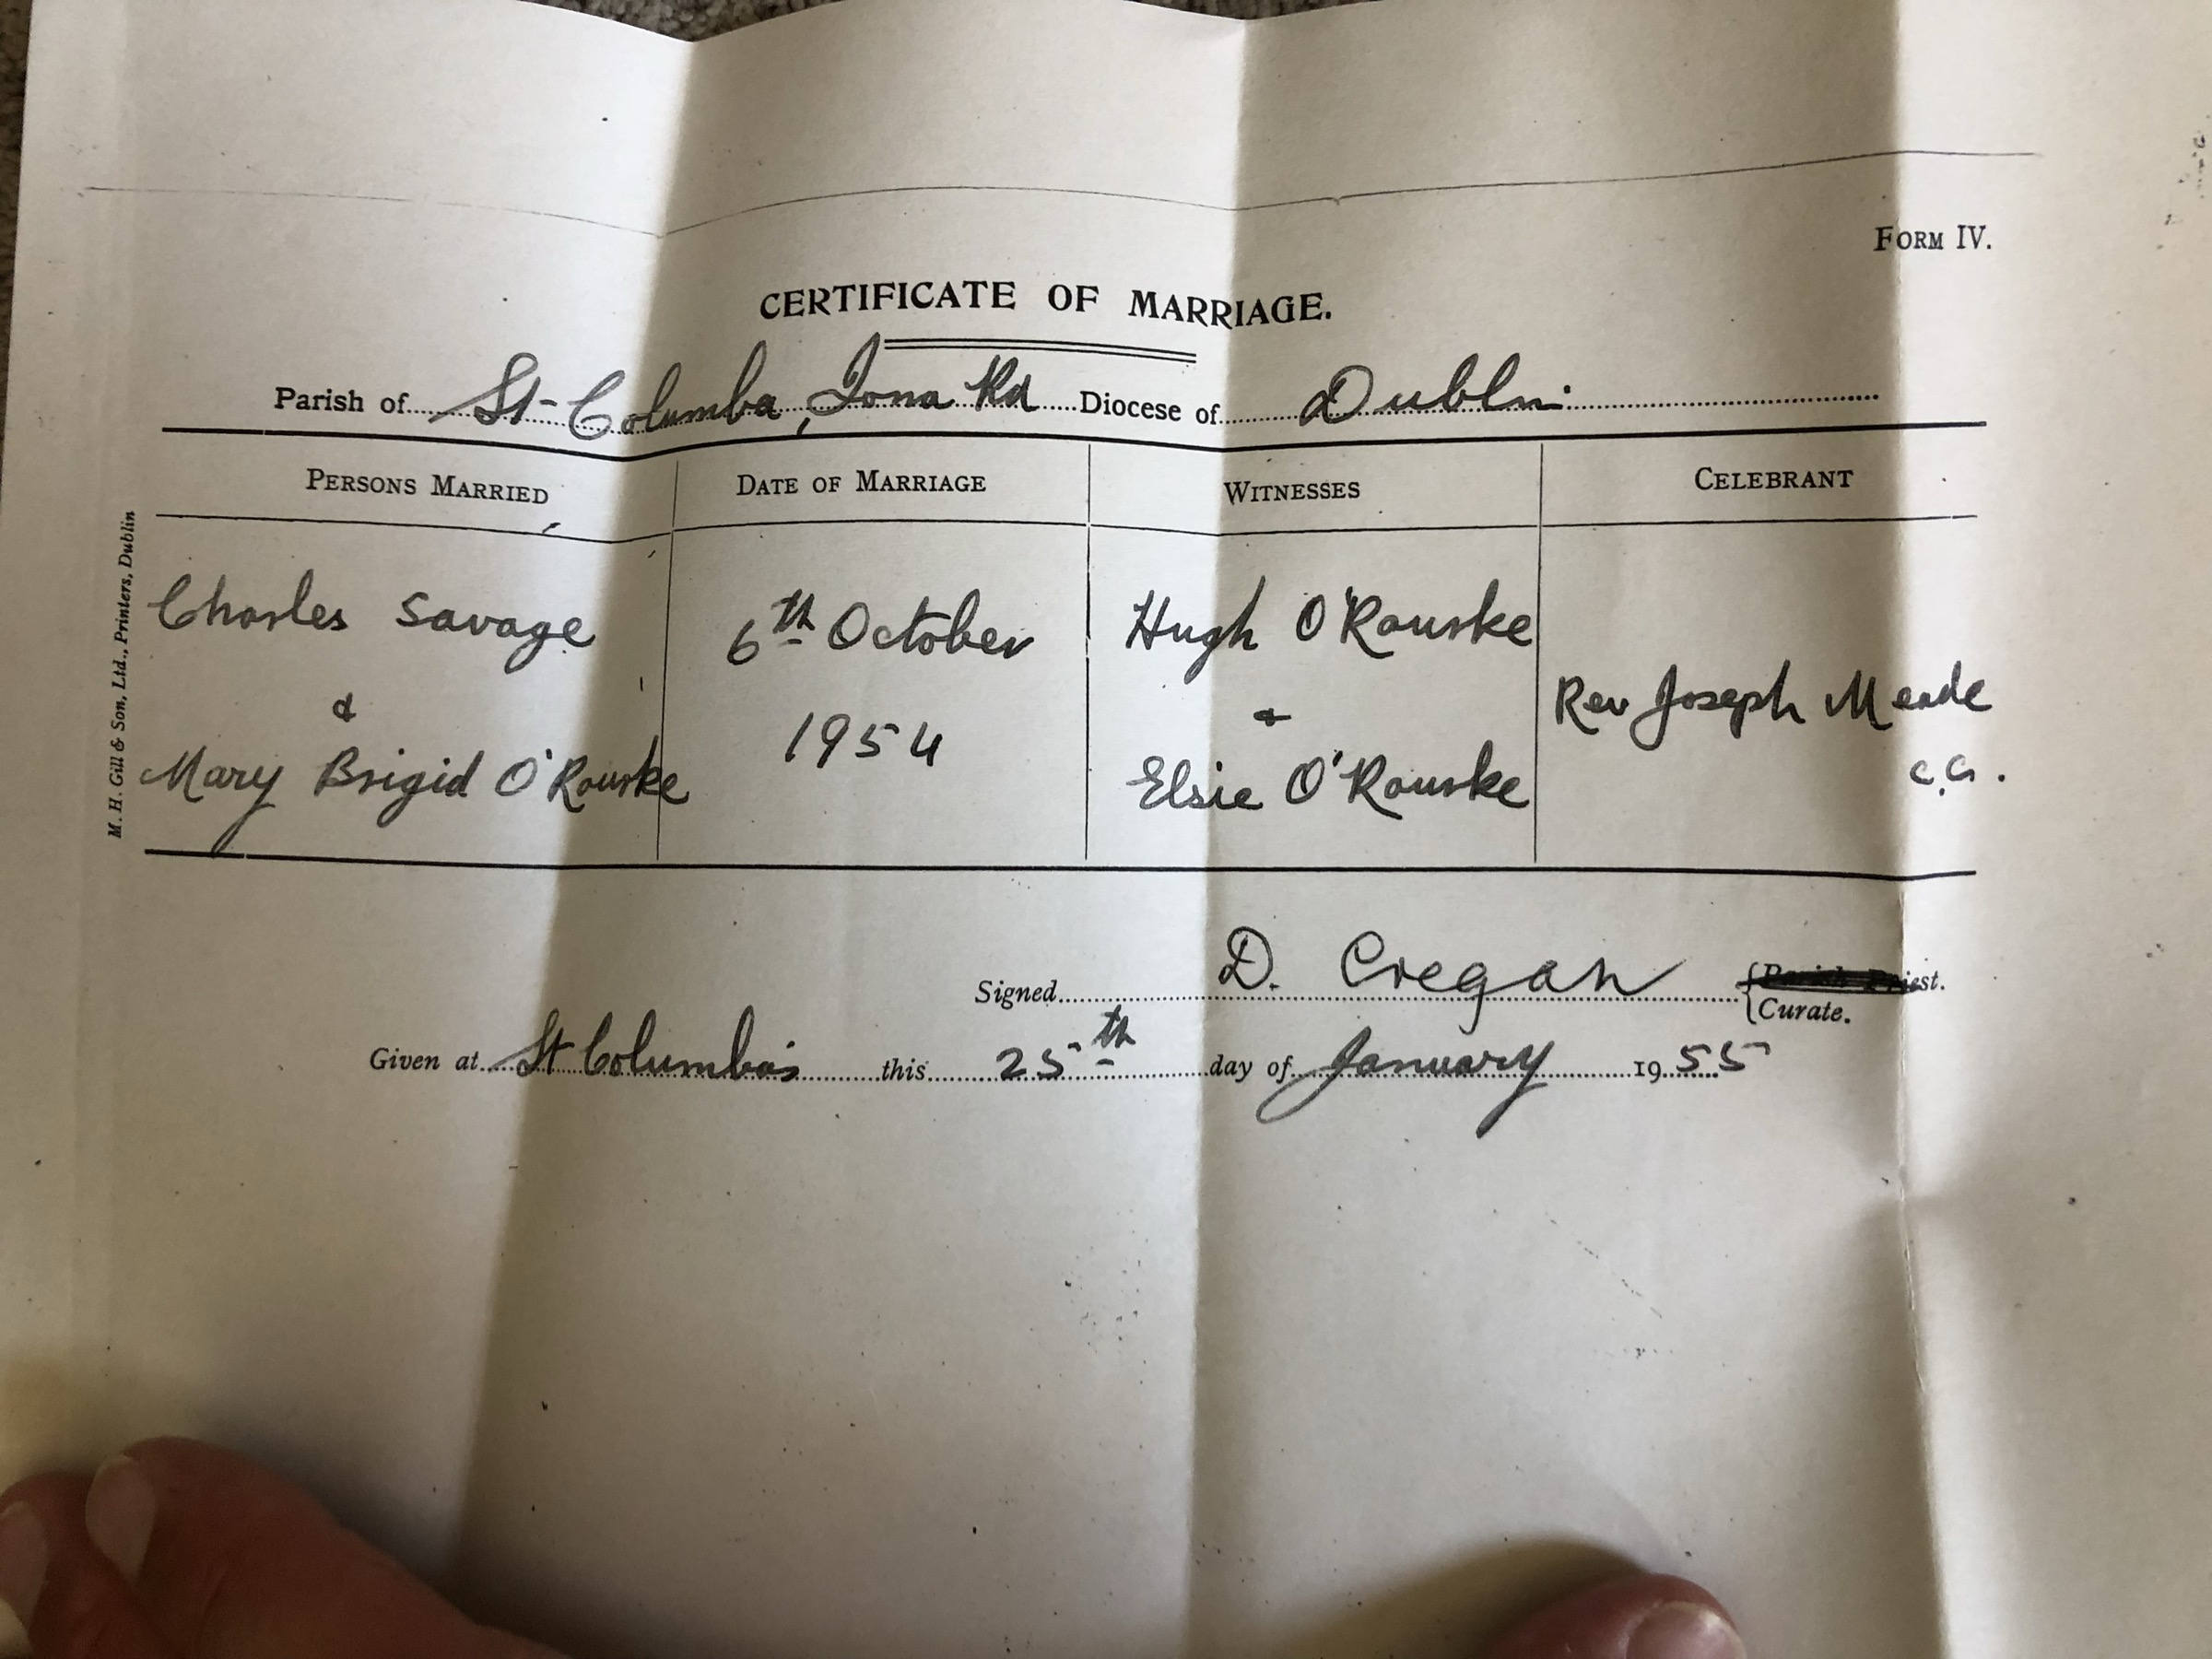 FORM IV.
CERTIFICATE OF MARRIAGE.
Parish of St. Columba, Iona Rd Diocese of Dublin
PERSONS MARRIED DATE OF MARRIAGE WITNESSES CELEBRANT
Charles Savage 6th October Hugh O'Rourke
& 1954 & Rev Joseph Meade
Mary Brigid O'Rourke Elsie O'Rourke c.c.
Signed D. Cregan Parish Priest.
Curate.
Given at St Columba's this 25th day of January 1955
M. H. Gill & Son, Ltd., Printers, Dublin